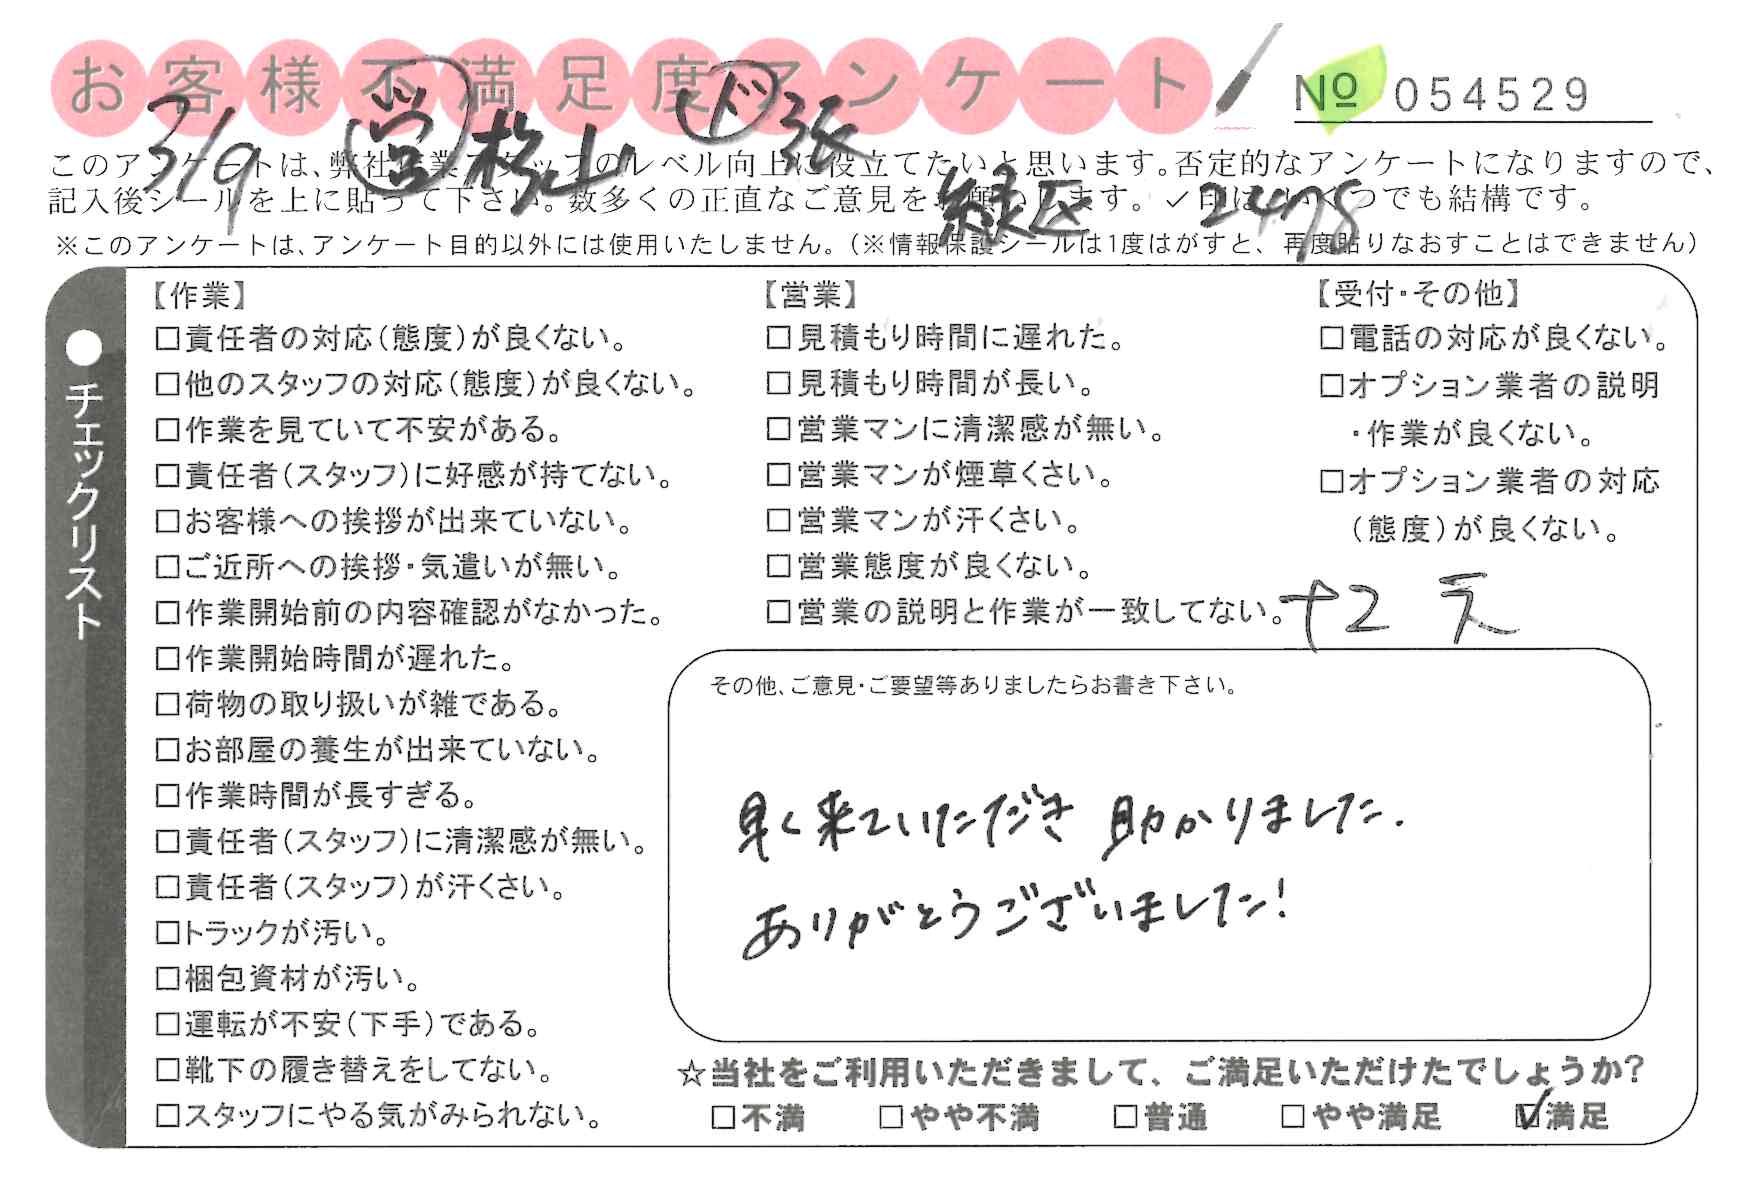 お客様不満足度アンケート
№ 054529
3/9 営 松山 ド 張
緑区 2478
このアンケートは、弊社作業スタッフのレベル向上に役立てたいと思います。否定的なアンケートになりますので、
記入後シールを上に貼って下さい。数多くの正直なご意見をお願いします。✓印はいくつでも結構です。
※このアンケートは、アンケート目的以外には使用いたしません。（※情報保護シールは1度はがすと、再度貼りなおすことはできません）
●チェックリスト
【作業】
□責任者の対応（態度）が良くない。
□他のスタッフの対応（態度）が良くない。
□作業を見ていて不安がある。
□責任者（スタッフ）に好感が持てない。
□お客様への挨拶が出来ていない。
□ご近所への挨拶・気遣いが無い。
□作業開始前の内容確認がなかった。
□作業開始時間が遅れた。
□荷物の取り扱いが雑である。
□お部屋の養生が出来ていない。
□作業時間が長すぎる。
□責任者（スタッフ）に清潔感が無い。
□責任者（スタッフ）が汗くさい。
□トラックが汚い。
□梱包資材が汚い。
□運転が不安（下手）である。
□靴下の履き替えをしてない。
□スタッフにやる気がみられない。
【営業】
□見積もり時間に遅れた。
□見積もり時間が長い。
□営業マンに清潔感が無い。
□営業マンが煙草くさい。
□営業マンが汗くさい。
□営業態度が良くない。
□営業の説明と作業が一致してない。
【受付・その他】
□電話の対応が良くない。
□オプション業者の説明
・作業が良くない。
□オプション業者の対応
（態度）が良くない。
+2
その他、ご意見・ご要望等ありましたらお書き下さい。
早く来ていただき 助かりました.
ありがとうございました!
☆当社をご利用いただきまして、ご満足いただけたでしょうか？
□不満 □やや不満 □普通 □やや満足 ☑満足